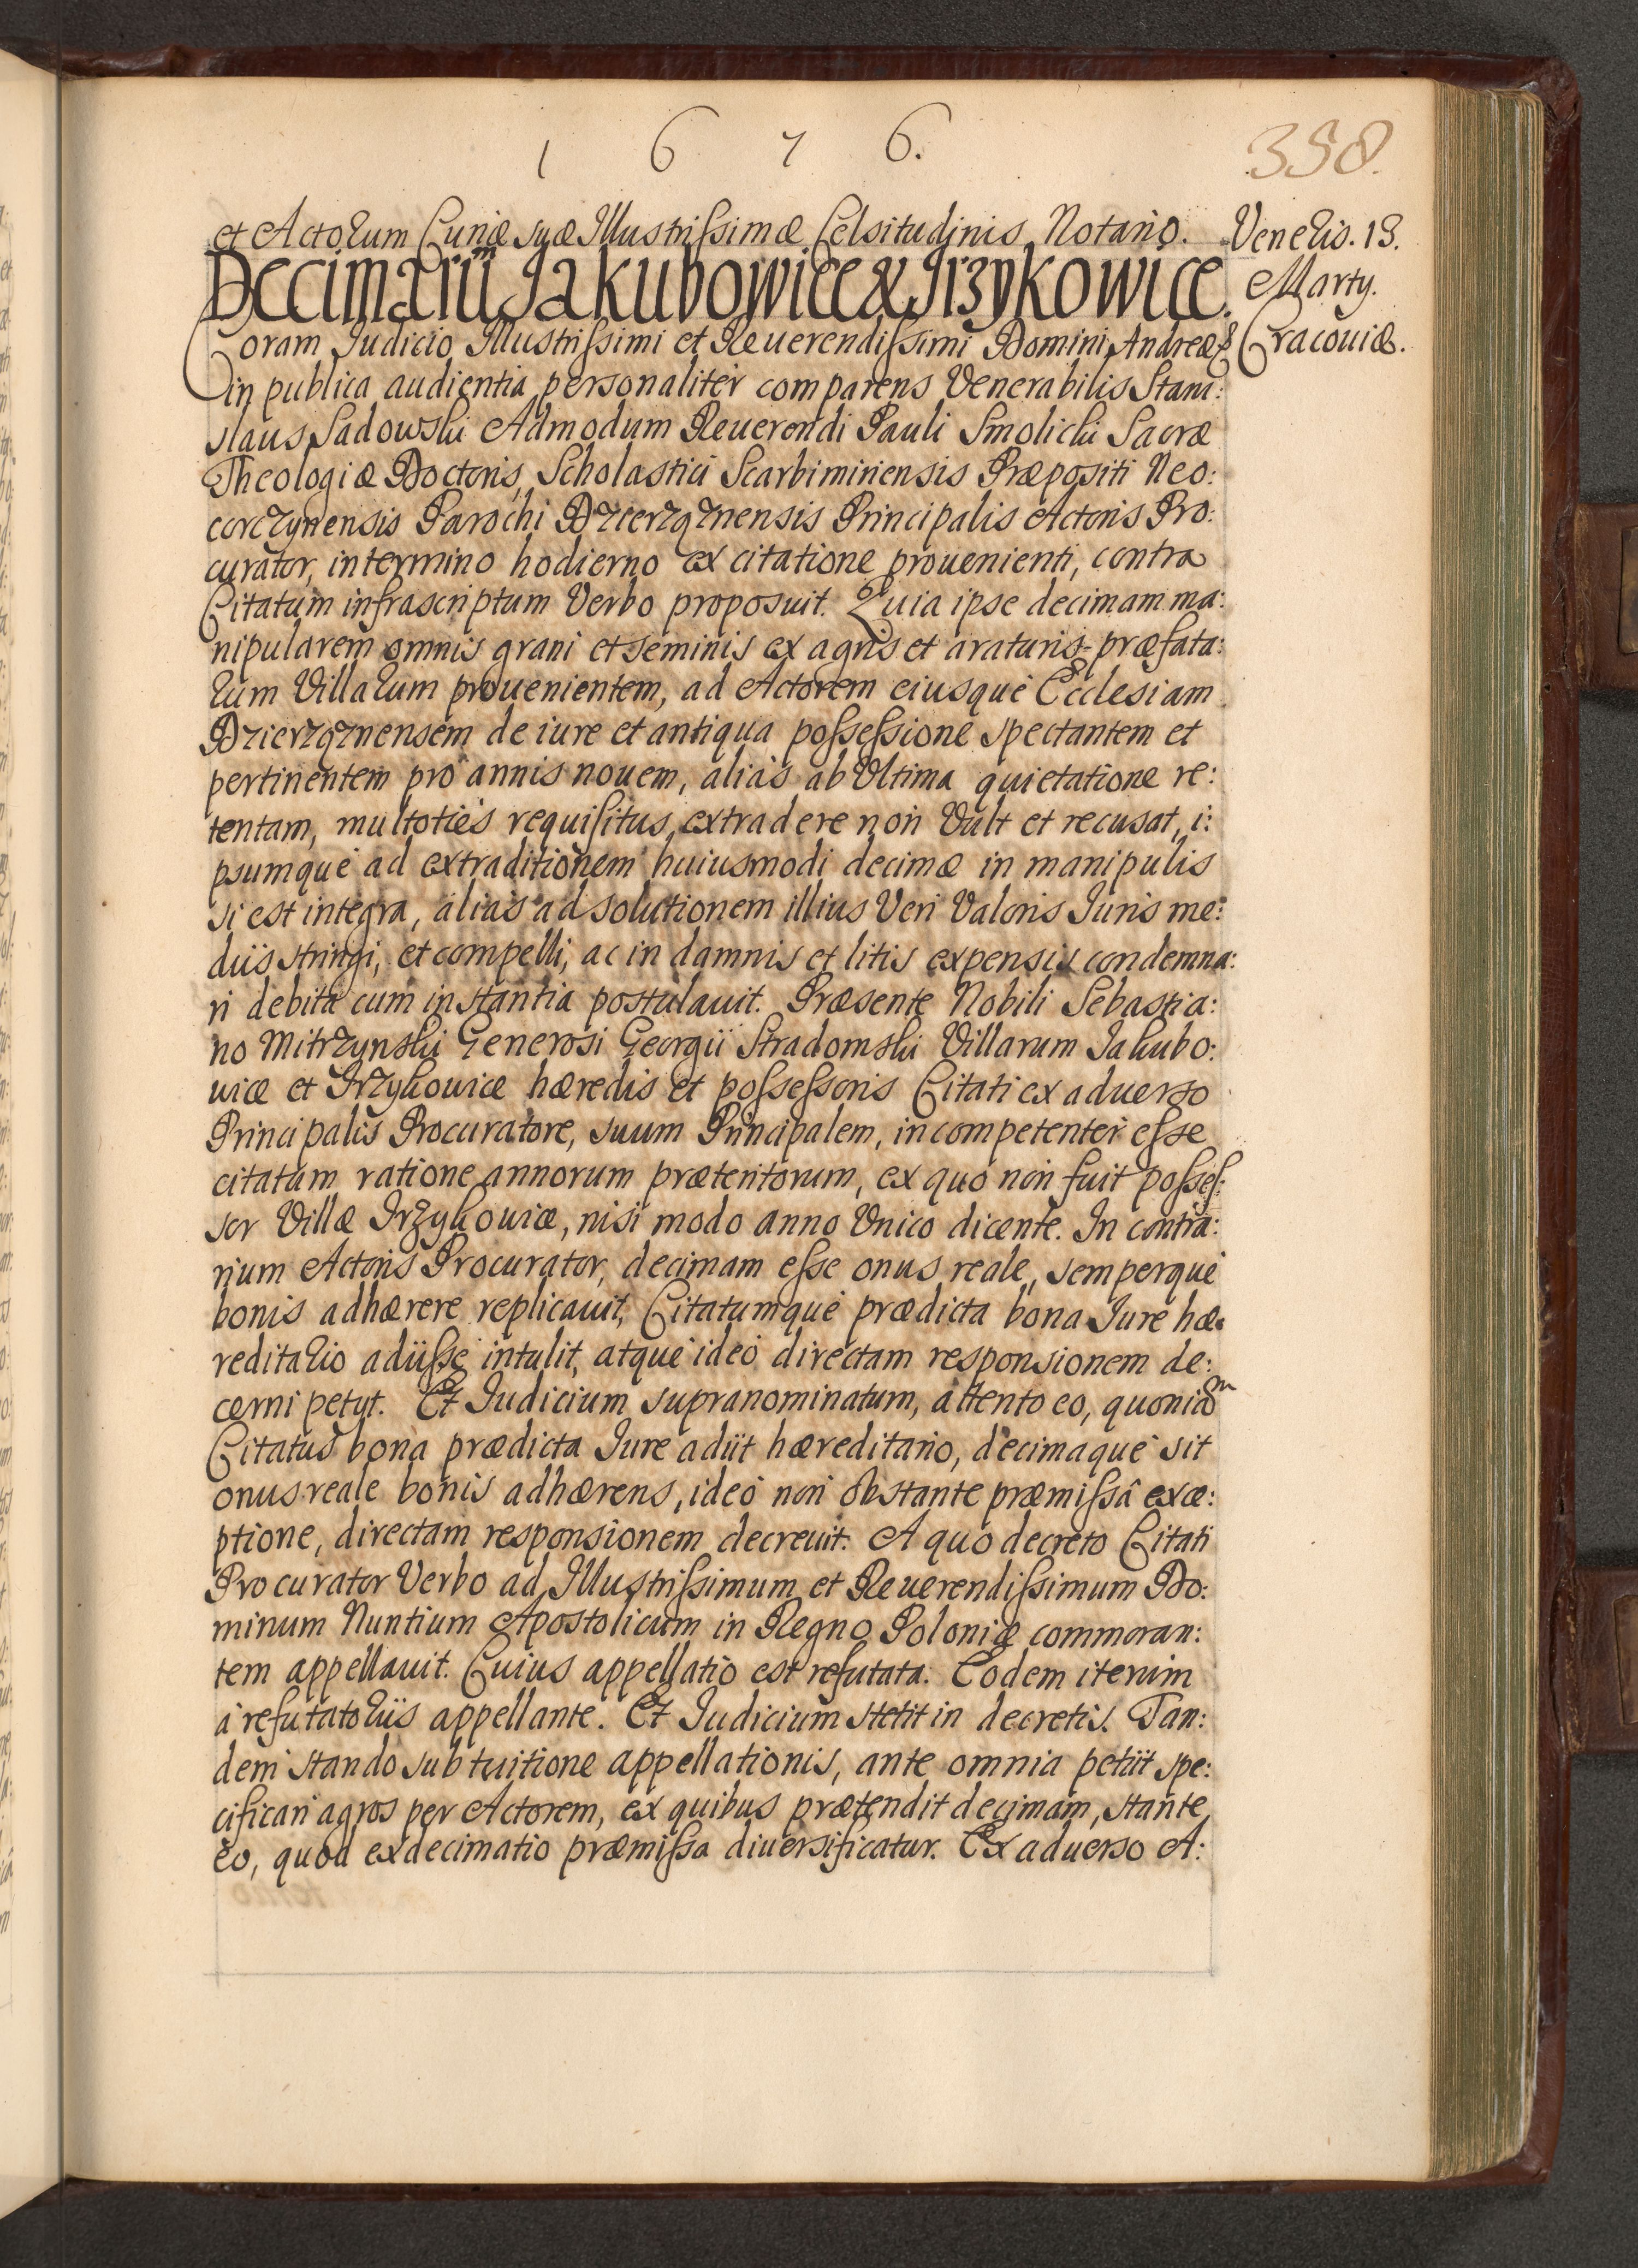 1 6 7 6.
358.
et Actorum Curiæ suæ Illustrissimæ Celsitudinis Notario.
Veneris. 13.
Marty.
Cracouiæ.
Decimarũ Jakubowice & Jrzykowice.
Coram Iudicio Illustrissimi et Reuerendissimi Domini Andreæ &
in publica audientia personaliter comparens Venerabilis Stani:
slaus Sadowski Admodum Reuerendi Pauli Smolicki Sacræ
Theologiæ Doctoris, Scholastici Scarbimiriensis Præpositi Neo:
corczynensis Parochi Dzierząznensis Principalis Actoris Pro:
curator, in termino hodierno ex citatione prouenienti, contra
Citatum infrascriptum Verbo proposuit. Quia ipse decimam ma:
nipularem omnis grani et seminis ex agris et araturis præfata:
rum Villarum prouenientem, ad Actorem eiusque Ecclesiam
Dzierząznensem de iure et antiqua possessione spectantem et
pertinentem pro annis nouem, alias ab Vltima quietatione re:
tentam, multoties requisitus, extradere non Vult et recusat, i:
psumque ad extraditionem huiusmodi decimæ in manipulis
si est integra, alias ad solutionem illius Veri Valoris Iuris me:
diis stringi, et compelli, ac in damnis et litis expensis condemna:
ri debita cum instantia postulauit. Præsente Nobili Sebastia:
no Mitrzynski Generosi Georgii Stradomski Villarum Jakubo:
uice et Jrzykouice hæredis et possessoris Citati ex aduerso
Principalis Procuratore, suum Principalem, incompetenter esse
citatum ratione annorum prætentorum, ex quo non fuit posses:
sor Villæ Jrzykouice, nisi modo anno Vnico dicente. In contra:
rium Actoris Procurator, decimam esse onus reale, semperque
bonis adhærere replicauit, Citatumque prædicta bona Iure hæ:
reditario adiisse intulit, atque ideo directam responsionem de:
cerni petyt. Et Iudicium supranominatum, attento eo, quoniam
Citatus bona prædicta Iure adiit hæreditario, decimaque sit
onus reale bonis adhærens, ideo non obstante præmissâ exce:
ptione, directam responsionem decreuit. A quo decreto Citati
Procurator Verbo ad Illustrissimum et Reuerendissimum Do:
minum Nuntium Apostolicum in Regno Poloniæ commoran:
tem appellauit. Cuius appellatio est refutata. Eodem iterum
à refutatoriis appellante. Et Iudicium stetit in decretis. Tan:
dem stando sub tuitione appellationis, ante omnia petiit spe:
cificari agros per Actorem, ex quibus prætendit decimam, stante
eo, quod exdecimatio præmissa diuersificatur. Ex aduerso A: